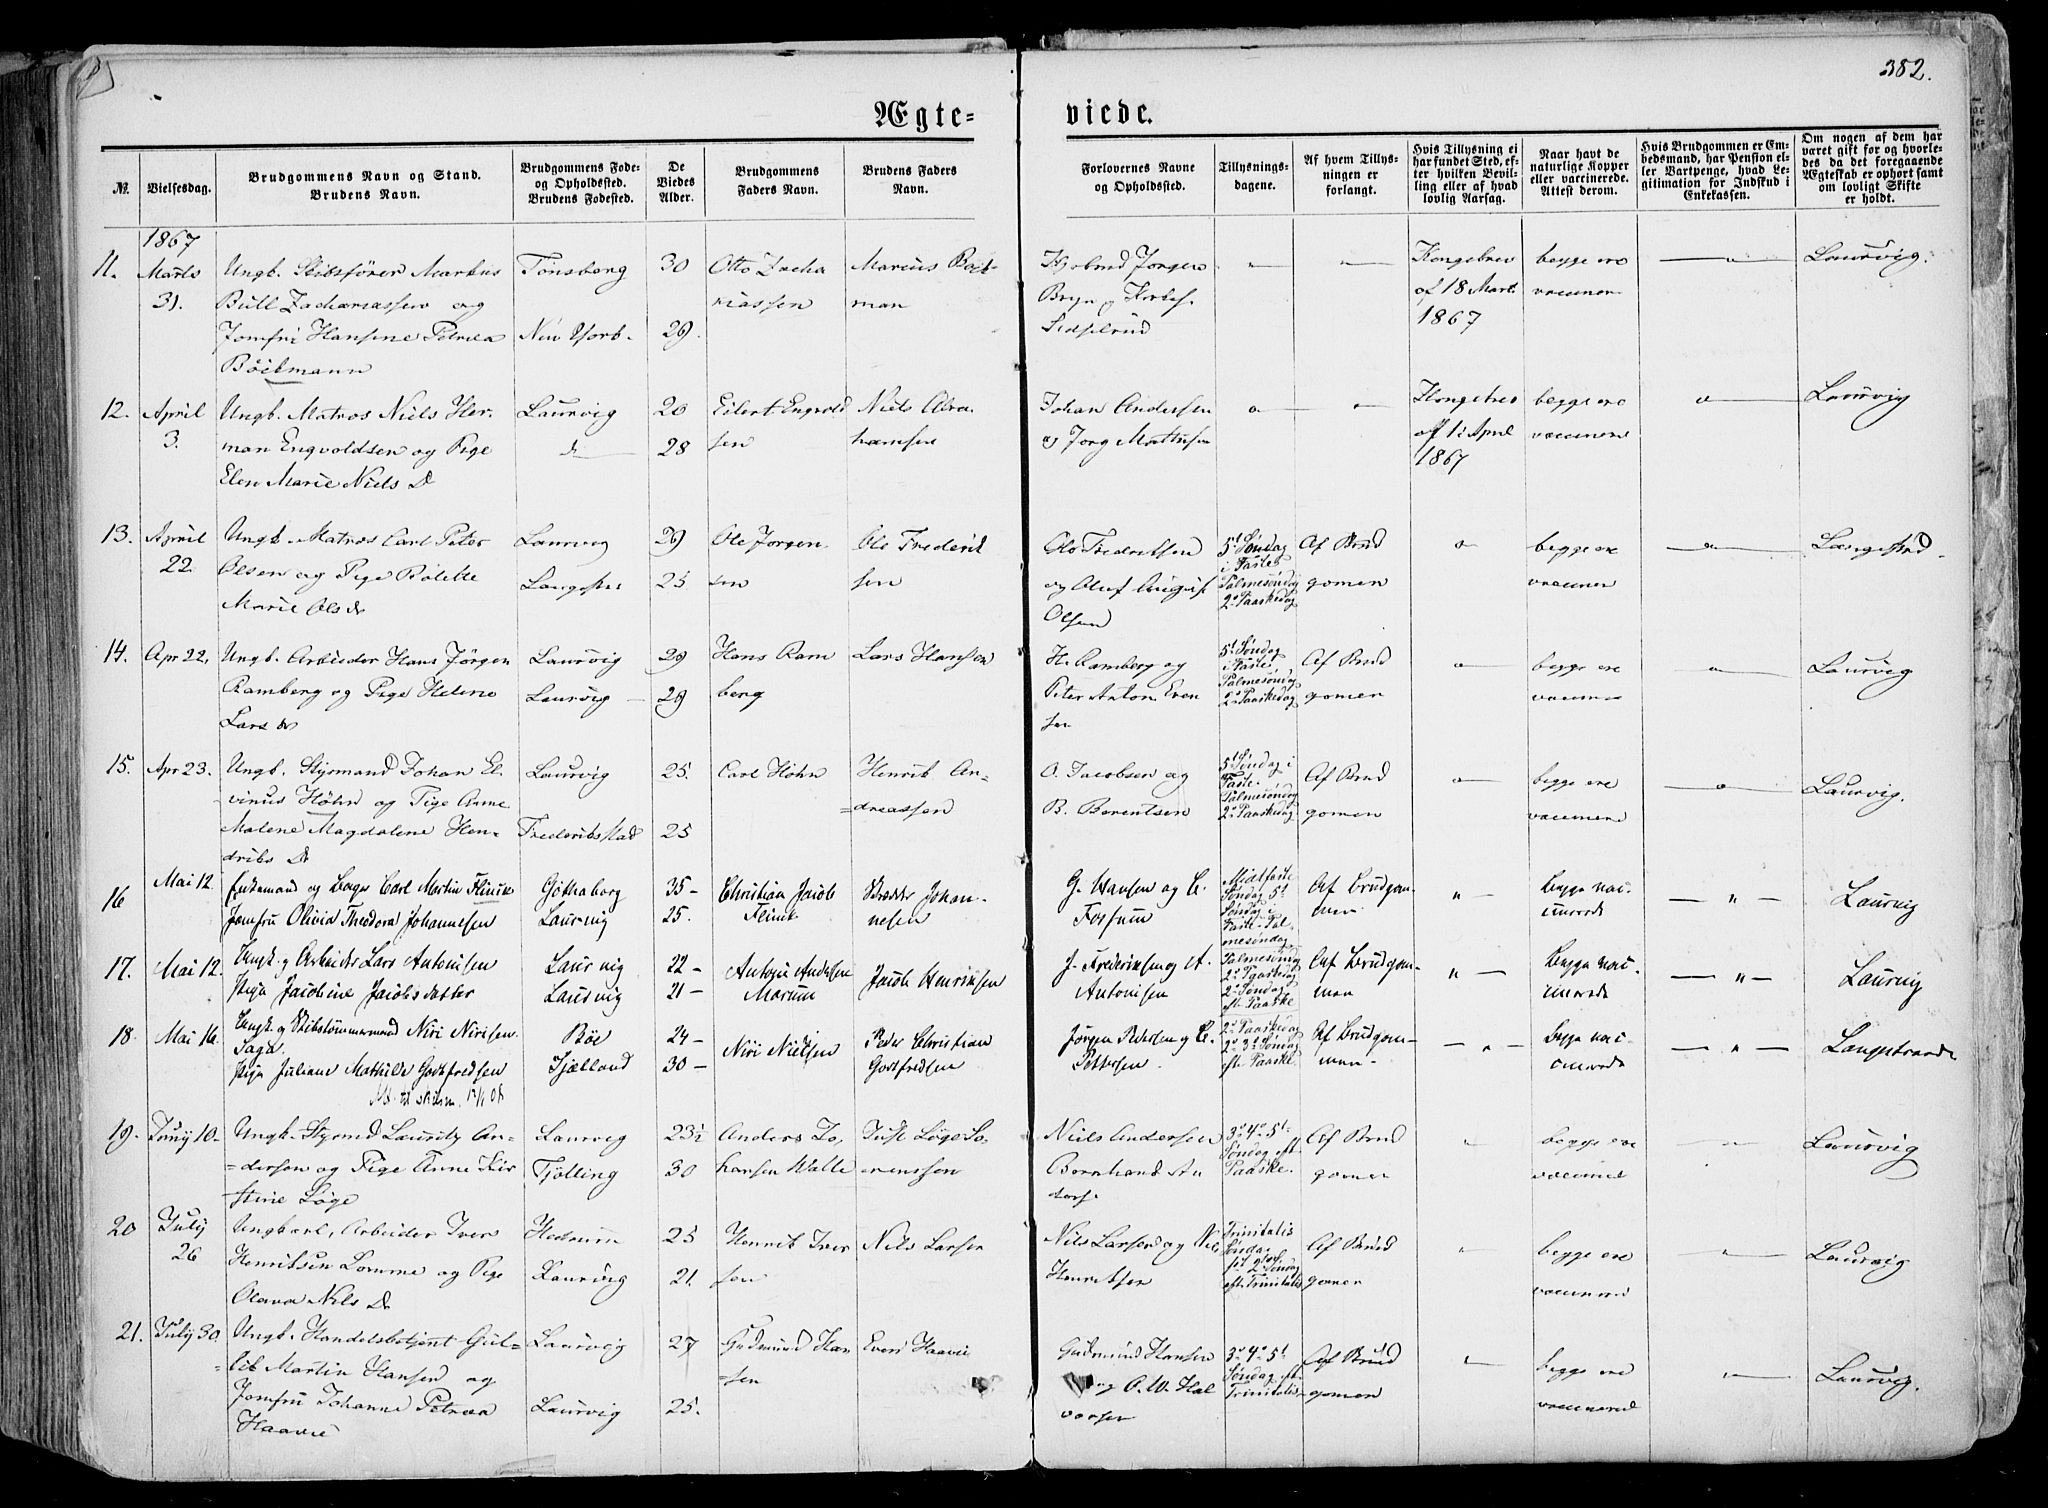 382.
Ægte=
viede.
No.
Vielsesdag.
Brudgommens Navn og Stand.
Brudens Navn.
Brudgommens Fode-
og Opholdsted.
Brudens Fodested.
De
Viedes
Alder.
Brudgommens
Faders Navn.
Brudens Faders
Navn.
Forlovernes Navne
og Opholdsted.
Tillysnings-
dagene.
Af hvem Tillys-
ningen er
forlangt.
Hvis Tillysning ei
har fundet Sted, ef-
ter hvilken Bevil-
ling eller af hvad
lovlig Aarsag.
Naar havt de
naturlige Kopper
eller vaccinerede.
Attest derom.
Hvis Brudgommen er Em-
bedsmand, har Pension el-
ler Vartpenge, hvad Le-
gitimation for Indskud i
Enkekassen.
Om nogen af dem har
været gift for og hvorle-
des da det foregaaende
Ægteskab er ophort samt
om lovligt Skifte
er holdt.
1867
11.
Marts
31.
Ungk. Skibsfører Markus
Bull Zachariassen og
Jomfru Hansine Petrea
Böickmann
Tonsberg
New York
30
29.
Otto Zacha
riassen
Marcus Böik-
man
Jorgen
Bryn og
Kongebrev
af 18 Mart.
1867
begge ere
vaccinere
Laurvig.
12.
April
3.
Ungk. Matros Niels Her-
man Engvoldsen og Pige
Elen Marie Niels D
Laurvig
do
20
28
Eilert Engvold
sen
Niels Abra
hamsen
Johan Andersen
og Jorg Mathisen
Kongebrev
af 1ste April
1867
begge ere
vaccinere
Laurvig
13.
April
22.
Ungk. Matros Carl Peter
Olsen og Pige
Marie Ols dr
Laurvig
Langestrand
29
25
Ole Jorgen
sen
Ole Frederik
sen
Ole Fredriksen
og Oluf August
Olsen
5t Søndag
i Faste
Palmesøndag
2. Paaskedag
Af Brud
gomen
begge ere
vaccinere
Langestrd
14.
Apr 22.
Ungk. Arbeider Hans Jörgen
Ramberg og Pige Helene
Lars dr
Laurvig
Laurvig
29
29
Hans Ram
berg
Lars Hansen
H. Ramberg og
Peter Anton Even
sen
5t Søndag
i Faste,
Palmesøndag
2. Paaskedag
Af Brud
gomen
begge ere
vaccinere
Laurvig
15.
Apr 23.
Ungk. Styrmand Johan El
vinus Höhn og Pige Anne
Malene Magdalene Hen-
driks Dr
Laurvig
Frederiksstad
25.
25
Carl Höhn
Henrik An-
=dreassen
O. Jacobsen og
B. Berentsen
5t Søndag i
Faste
Palmesøndag
2. Paaskedag
Af Brud
gomen
begge ere
vaccinere
Laurvig.
16
Mai 12.
Enkemand og Bager Carl Martin Flinck
Jomfru Olivia Theodora Johannesen
Göthaborg
Laurvig
35-
25.
Christian Jacob
Flinck
Johan-
nesen
G. Hansen og C.
Fosnum
Midtfaste
Søndag 5t
Søndag i
Faste Pal-
mesøndag
Af Brudgom-
men
begge vac-
cinerede
Laurvig
17.
Mai 12.
Ungk. og Arbeider Lars Antonisen
Pige Jacobine Jacobsdatter
Laurvig
Laurvig
22 -
21 -
Anton Andersen
Marum
Jacob Henriksen
J. Frederiksen og A.
Antonisen
Palmesøndag
2. Paaskedag
2. Søndag
eft. Paaske
Af Brudgom-
men
begge vac-
cinerede
Laurvig
18.
Mai 16.
Ungk. og Skibstömmermand Niri Nirisen
Saga
Pige Juliane Mathilde Godtfredsen
Böe
Sjælland
24-
30-
Niri Nielsen
Peder Christian
Godtfredsen
Jörgen Pedersen og C.
Pettersen
2. Paaskedag
2. 3. Sønd.
eft. Paaske
Af Brudgom-
men
begge vac-
cinerede
Langestrand
19.
Juny 10.
Ungk. Styrmd Lauritz An-
=dersen og Pige Anne Kir
stine Løge
Laurvig
Tjölling
23½
30
Anders Jo-
hansen Walle
Just Løge So-
rensson
Niels Andersen
Bernhard An
ders.
3. 4. 5t
Søndag eft.
Paaske.
Af Brud
gomen
begge ere
vaccinered
Laurvig
20
July
26
Ungkarl, Arbeider Iver
Henriksen Lomme og Pige
Olava Niels Dr
Hedrum
25
21.
Henrik Iver
sen
Niels Larsen
Niels Larsen og Nils
Henriksen
Trinitatis
Søndag
eft. Trinitatis
Af Brud
gomen
begge ere
vaccinered
Laurvig
21.
July 30.
Ungk. Handelsbetjent Gul-
=lik Martin Hansen og
Jomfru Johanne Petrea
Haavie
Laurvig
Laurvig
27
25.
Gudmund Han
=sen
Even Haavie
Gudmund Hansen
og A. W. Hal
vorsen
3. 4. 5t
Søndag eft.
Trinitatis
Af Brud
gomen
begge ere
vaccinered
Laurvig.